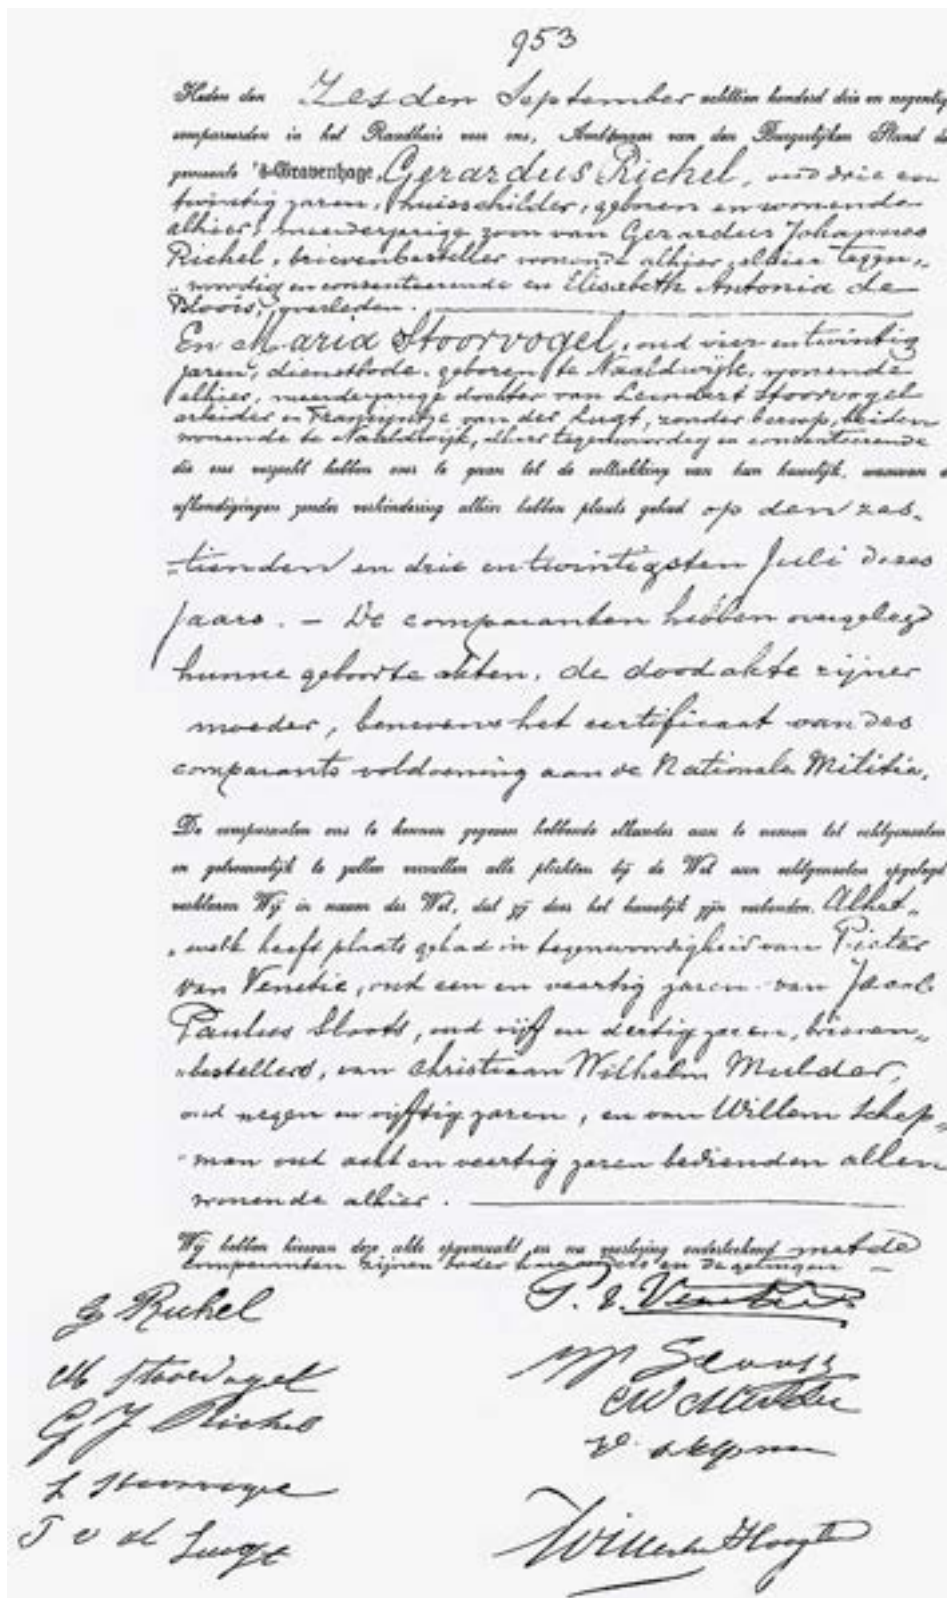 953
Heden den Zesden September achttien honderd drie en negentig
compareerden in het Raadhuis voor ons, Ambtenaar van den Burgerlijken Stand de
gemeente 's-Gravenhage, Gerardus Richel, oud drie en
twintig jaren, huisschilder, geboren en wonende
alhier, meerderjarige zoon van Gerardus Johannes
Richel, brievenbesteller wonende alhier, alhier tegen„
„woordig en consenteerende en Elisabeth Antonia de
overleden.
En Maria Stoorvogel, oud vier en twintig
jaren, dienstbode, geboren te Naaldwijk, wonende
alhier, meerderjarige dochter van Leendert Stoorvogel
arbeider en van der Lugt, zonder beroep, beiden
wonende te Naaldwijk, alhier tegenwoordig en consenteerende
die ons verzocht hebben over te gaan tot de voltrekking van hun huwelijk, waarvan d
afkondigingen zonder verhindering alhier hebben plaats gehad op den zes-
-tienden en drie en twintigsten Juli dezes
jaars. — De comparanten hebben overgelegd
hunne geboorte akten, de doodakte zijner
moeder, benevens het certificaat van des
comparants voldoening aan de Nationale Militie.
De comparanten ons te kennen gegeven hebbende elkander aan te nemen tot echtgenooten
en getrouwelijk te zullen vervullen alle plichten bij de Wet aan echtgenooten opgelegd
verklaren Wij in naam der Wet, dat zij door het huwelijk zijn verbonden. Alhet„
„welk heeft plaats gehad in tegenwoordigheid van Pieter
van Venetie, oud een en veertig jaren van Jacob
Paulus Sloots, oud vijf en dertig jaren, brieven„
„bestellers, van Christiaan Wilhelm Mulder,
oud negen en vijftig jaren, en van Willem Schep„
„man oud acht en veertig jaren bedienden allen
wonende alhier.
Wij hebben hiervan deze akte opgemaakt en na voorlezing onderteekend met de
comparanten zijnen vader haar ouders en de getuigen
G Richel
M Stoorvogel
G J Richel
L Stoorvogel
T v d Lugt
P. v. Venetie
Sloots
CW Mulder
W. Schepman